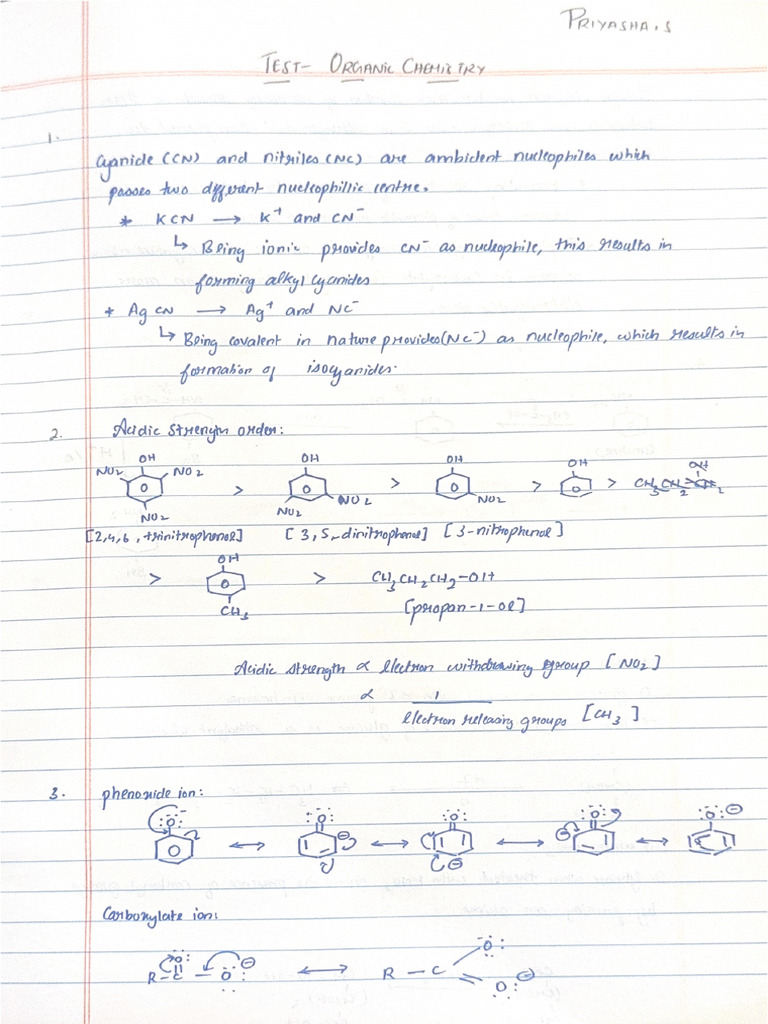 PRIYASHA.S
TEST- ORGANIC CHEMISTRY
1.
Cyanide (CN) and nitriles (NC) are ambident nucleophiles which
posses two different nucleophillic centre.
* KCN → K⁺ and CN⁻
↳ Being ionic provides CN⁻ as nucleophile, this results in
forming alkyl cyanides
* AgCN → Ag⁺ and NC⁻
↳ Being covalent in nature provides (NC⁻) as nucleophile, which results in
formation of isocyanides.
2. Acidic strength order:
OH OH OH OH OH
NO2 NO2 > > > > CH3CH2
NO2 NO2 NO2 NO2
[2,4,6, trinitrophenol] [3,5-dinitrophenol] [3-nitrophenol]
OH
> > CH3CH2CH2-OH
CH3 [propan-1-ol]
Acidic strength ∝ Electron withdrawing group [NO2]
∝ 1
Electron releasing groups [CH3]
3. phenoxide ion:
:Ö:⁻ :O: :O: :O: :O:⊖
↔ ⊖ ↔ ⊖ ↔ ⊖ ↔
Carboxylate ion:
:O: ⊖ :O:
R - C - O: ↔ R - C = O: ⊖